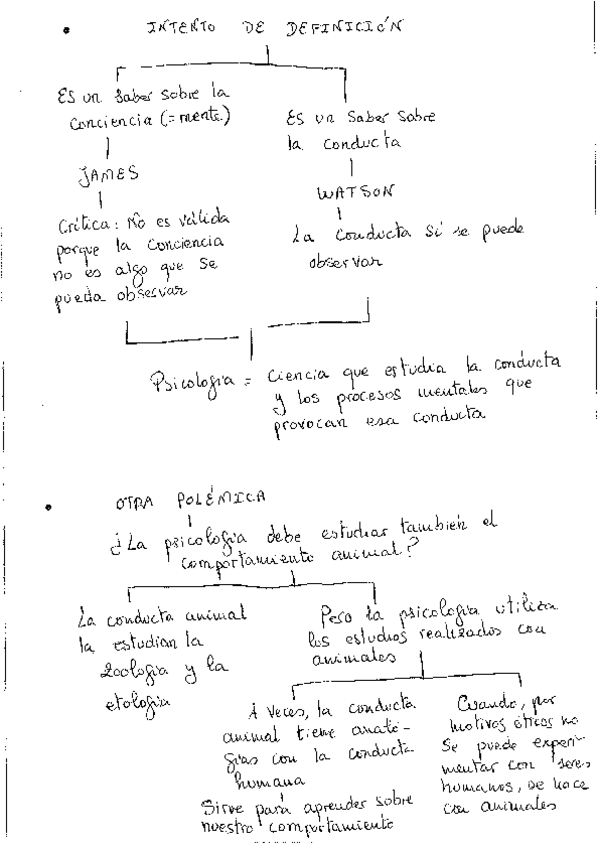 INTENTO DE DEFINICIÓN
Es un saber sobre la
conciencia (= mente)
JAMES
Crítica: No es válida
porque la conciencia
no es algo que se
pueda observar
Es un saber sobre
la conducta
WATSON
La conducta sí se puede
observar
Psicología = Ciencia que estudia la conducta
y los procesos mentales que
provocan esa conducta
OTRA POLÉMICA
¿La psicología debe estudiar también el
comportamiento animal?
La conducta animal
la estudian la
zoología y la
etología
Pero la psicología utiliza
los estudios realizados con
animales
A veces, la conducta
animal tiene analo-
gías con la conducta
humana
Sirve para aprender sobre
nuestro comportamiento
Cuando, por
motivos éticos no
se puede experi-
mentar con seres
humanos, se hace
con animales